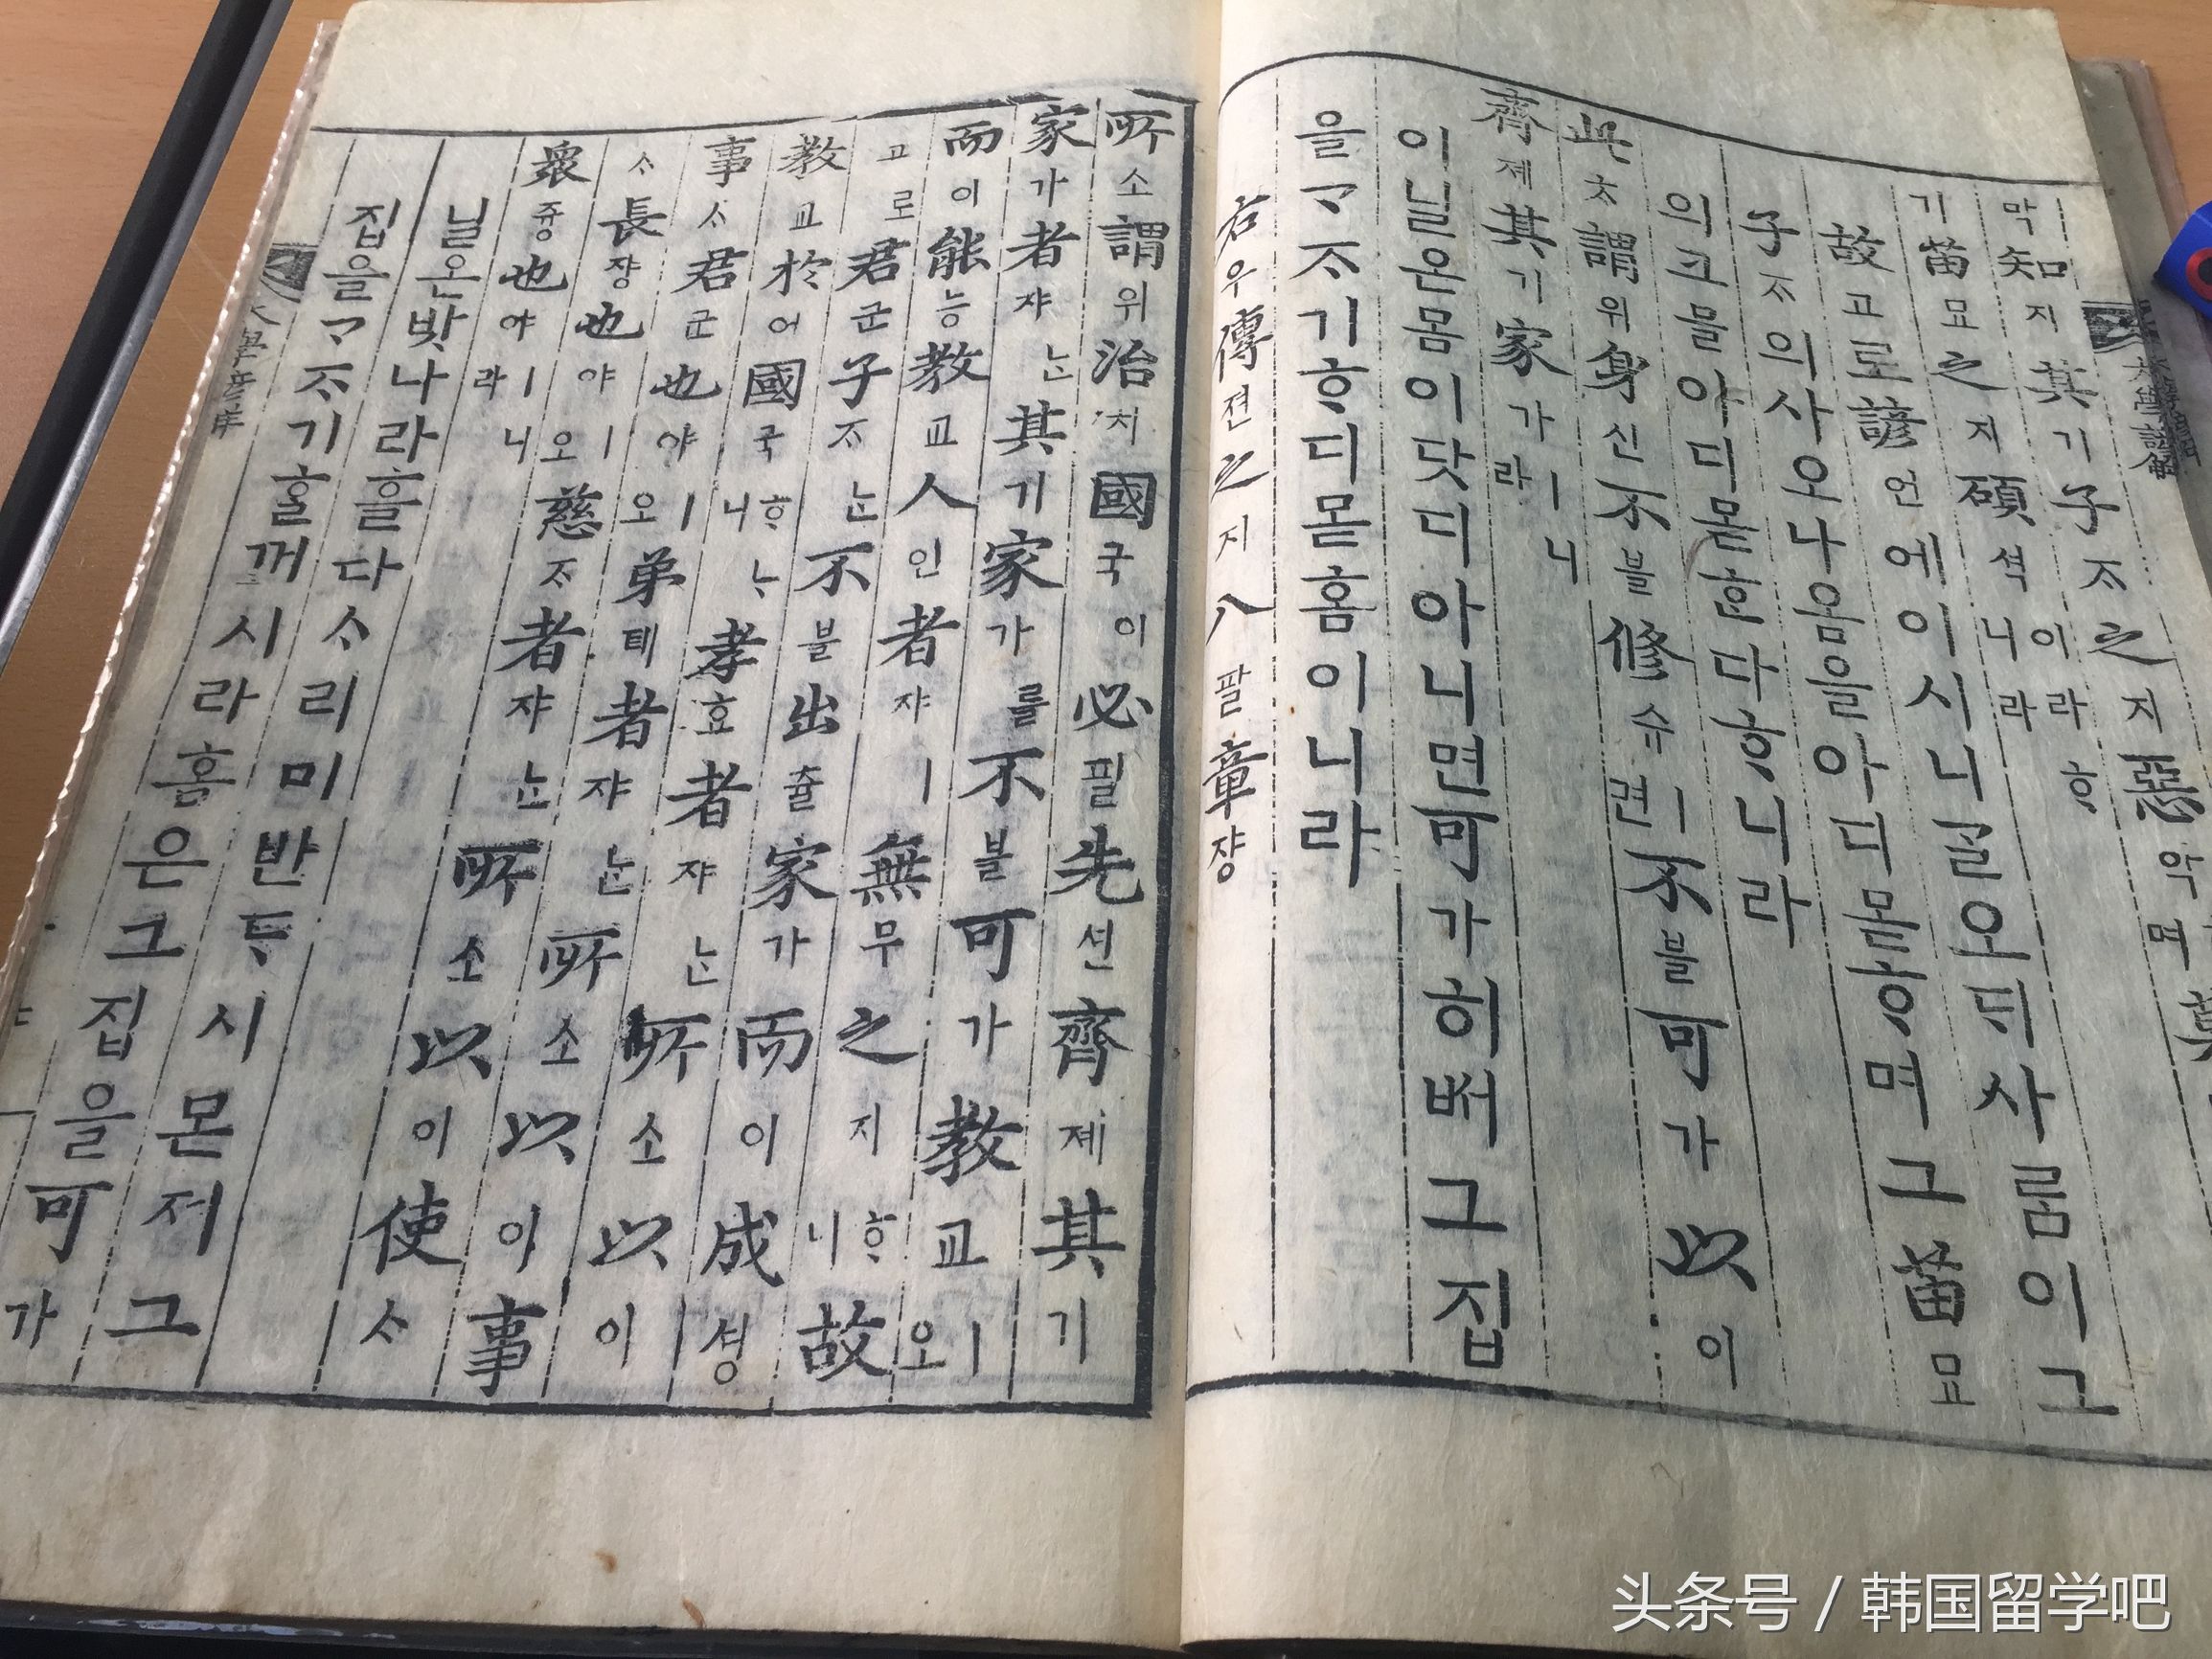 막知지其기子ᄌᆞ之지惡악며莫
기苗묘之지碩셕이라ᄒᆞ니라
故고로諺언에이시니ᄀᆞᆯ오ᄃᆡ사ᄅᆞᆷ이그
子ᄌᆞ의사오나옴을아디몯ᄒᆞ며그苗묘
의크믈아디몯ᄒᆞᆫ다ᄒᆞ니라
此ᄎᆞ謂위身신不블修슈ㅣ면不블可가以이
齊졔其기家가ㅣ니라
이닐온몸이닷디아니면可가히ᄡᅥ그집
을ᄀᆞᄌᆞ기ᄒᆞ디몯홈이니라
右우傳뎐之지八팔章쟝
所소謂위治치國국이必필先션齊졔其기
家가者쟈ᄂᆞᆫ其기家가를不블可가敎교ㅣ오
而이能능敎교人인者쟈ㅣ無무之지ᄒᆞ니故
고로君군子ᄌᆞᄂᆞᆫ不블出츌家가而이成셩
敎교於어國국ᄒᆞᄂᆞ니孝효者쟈ᄂᆞᆫ所소以이
事ᄉᆞ君군也야ㅣ오弟뎨者쟈ᄂᆞᆫ所소以이事
ᄉᆞ長쟝也야ㅣ오慈ᄌᆞ者쟈ᄂᆞᆫ所소以이使ᄉᆞ
衆즁也야ㅣ니라
닐온밧나라흘다ᄉᆞ리미반ᄃᆞ시몬져그
집을ᄀᆞᄌᆞ기홀꺼시라홈은그집을可가
大學諺解
头条号 / 韩国留学吧